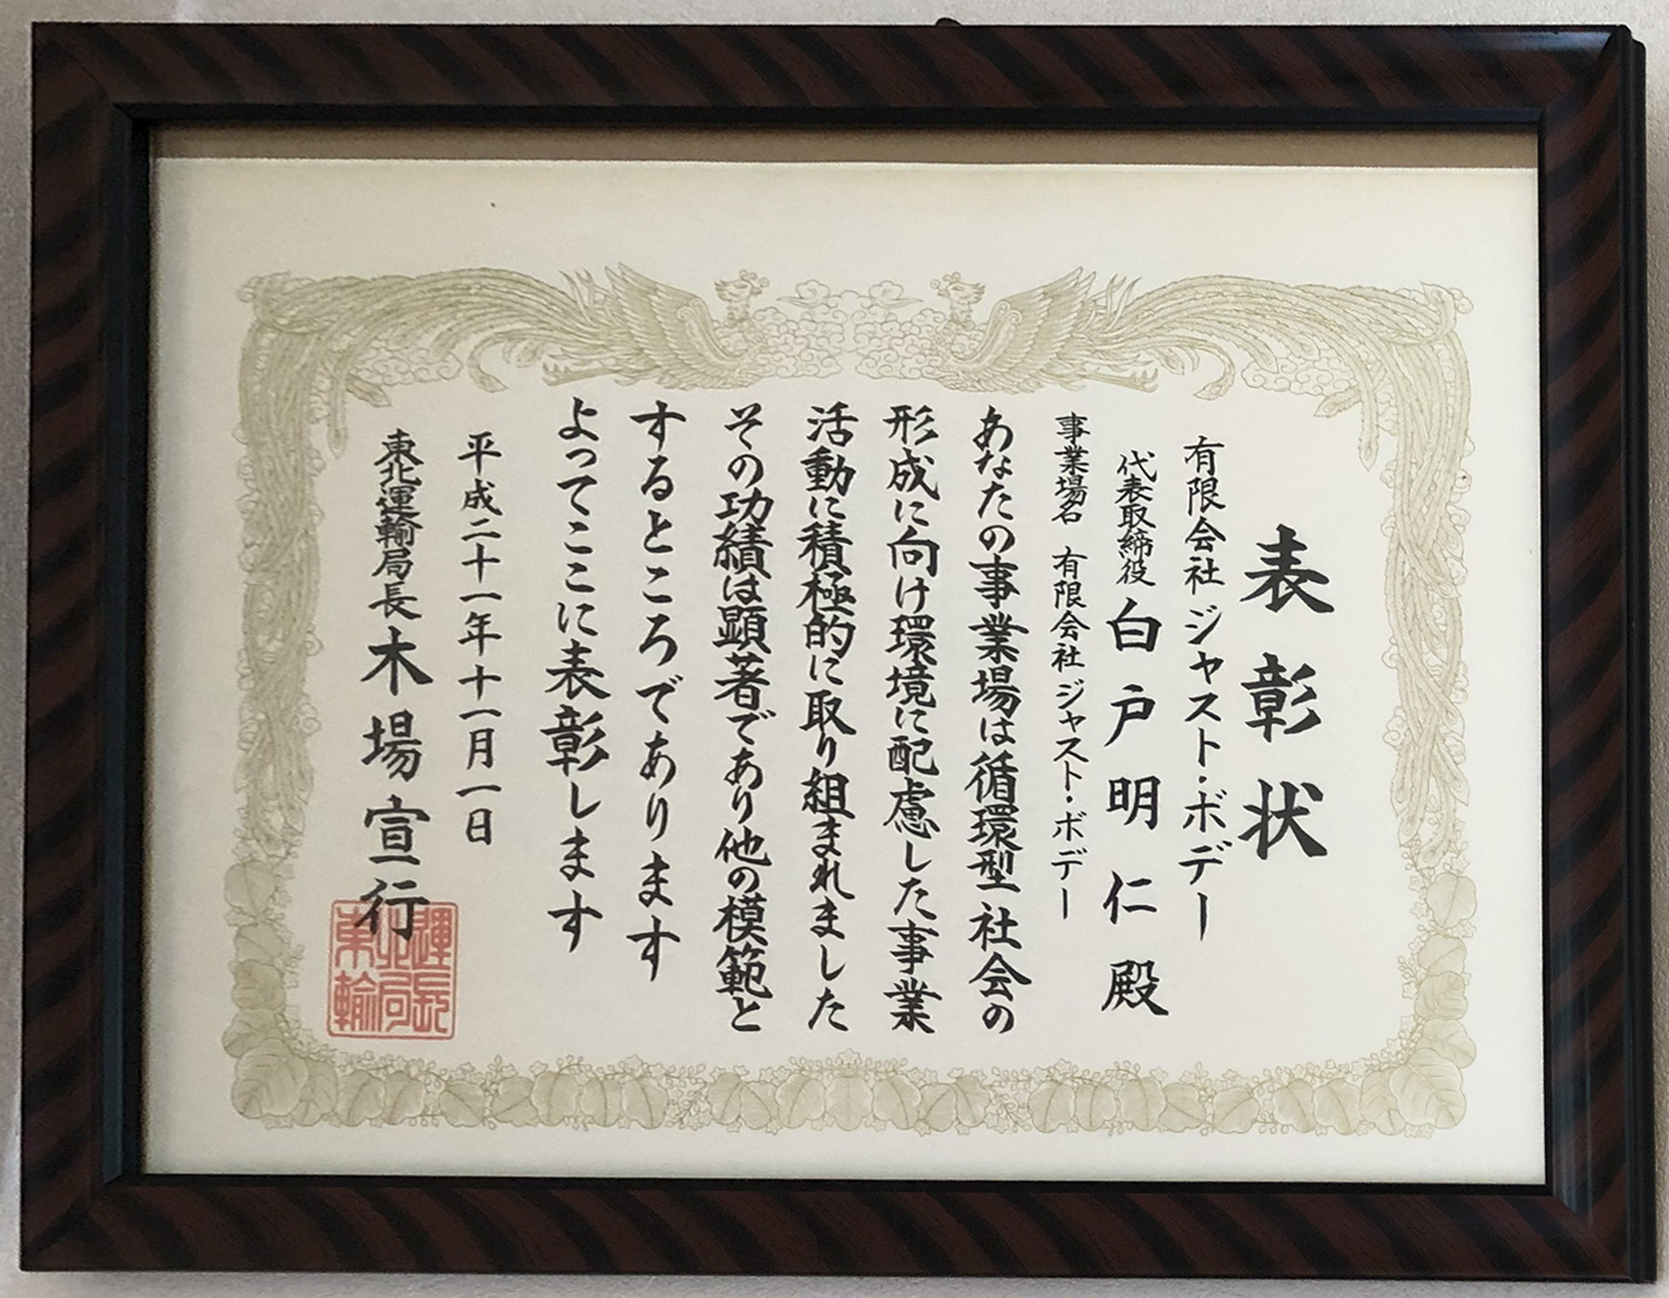 表彰状
有限会社 ジャスト・ボデー
代表取締役 白戸明仁殿
事業場名 有限会社 ジャスト・ボデー
あなたの事業場は循環型社会の
形成に向け環境に配慮した事業
活動に積極的に取り組まれました
その功績は顕著であり他の模範と
するところであります
よってここに表彰します
平成二十一年十一月一日
東北運輸局長 木場宣行
運長
北局
東輸